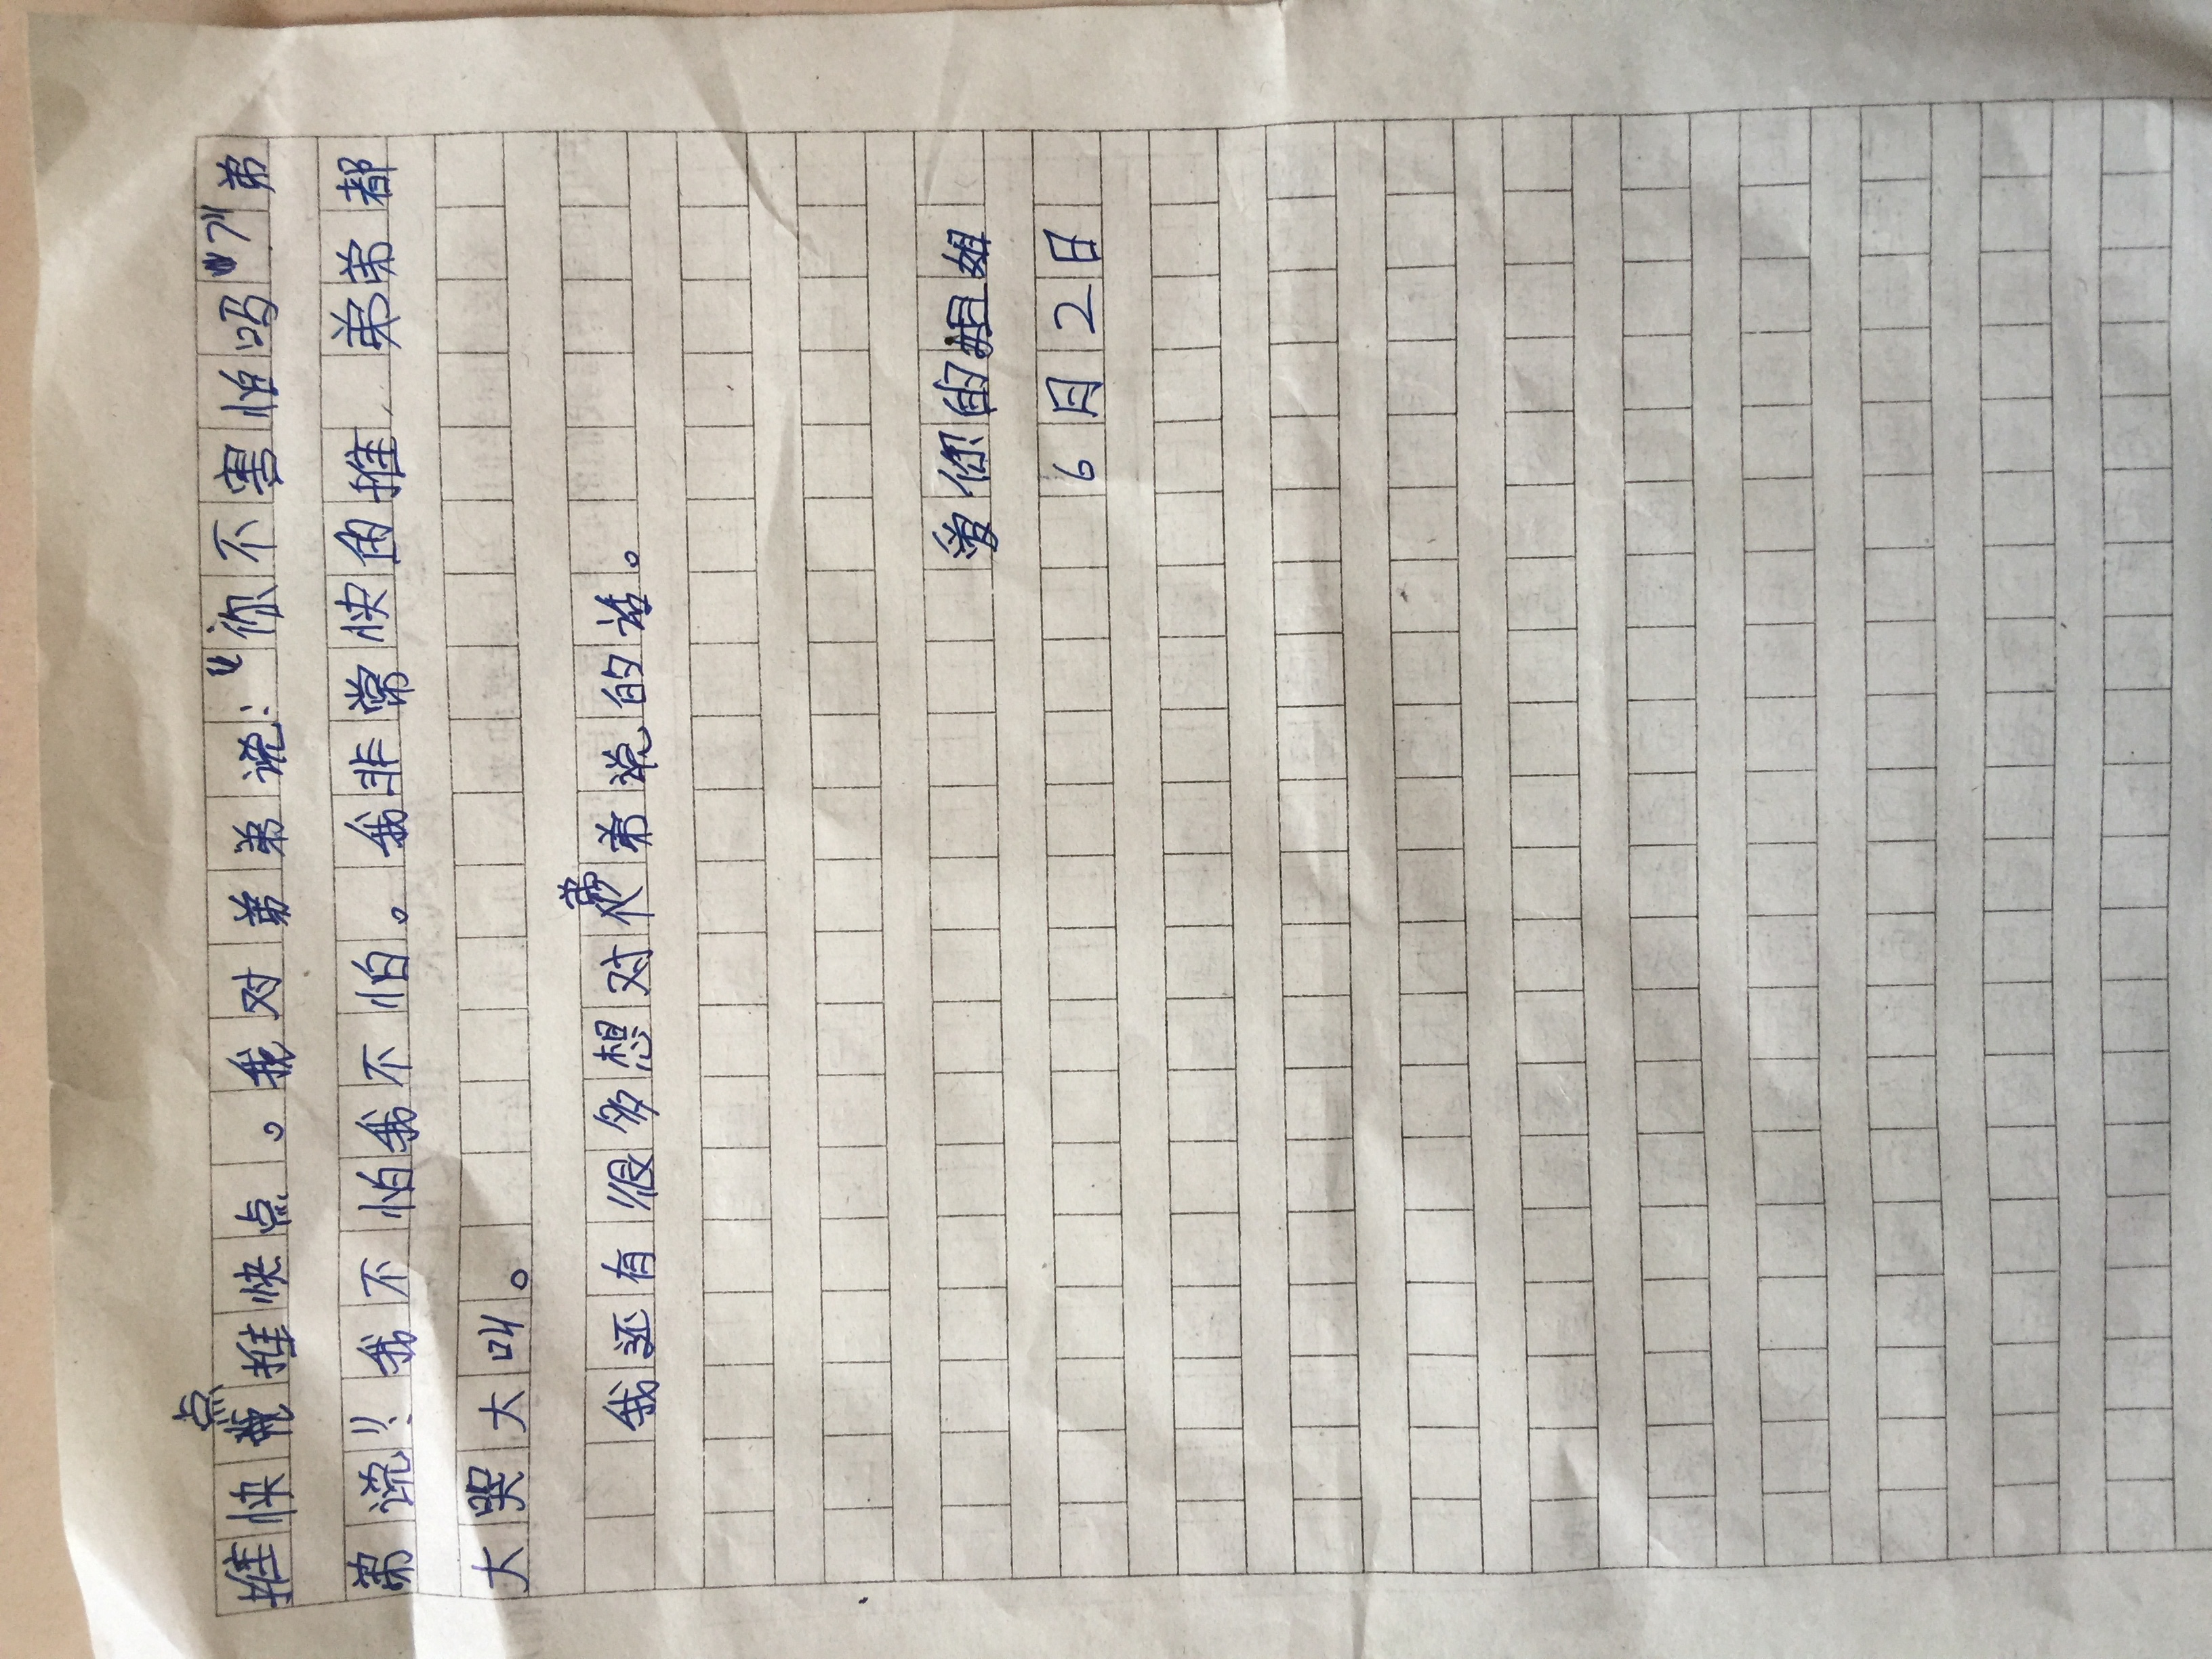 推快点推快点。我对弟弟说：“你不害怕吗”？弟
弟说：“我不怕我不怕。我非常快的推，弟弟都
大哭大叫。
我还有很多想对弟弟说的话。
爱你的姐姐
6月2日